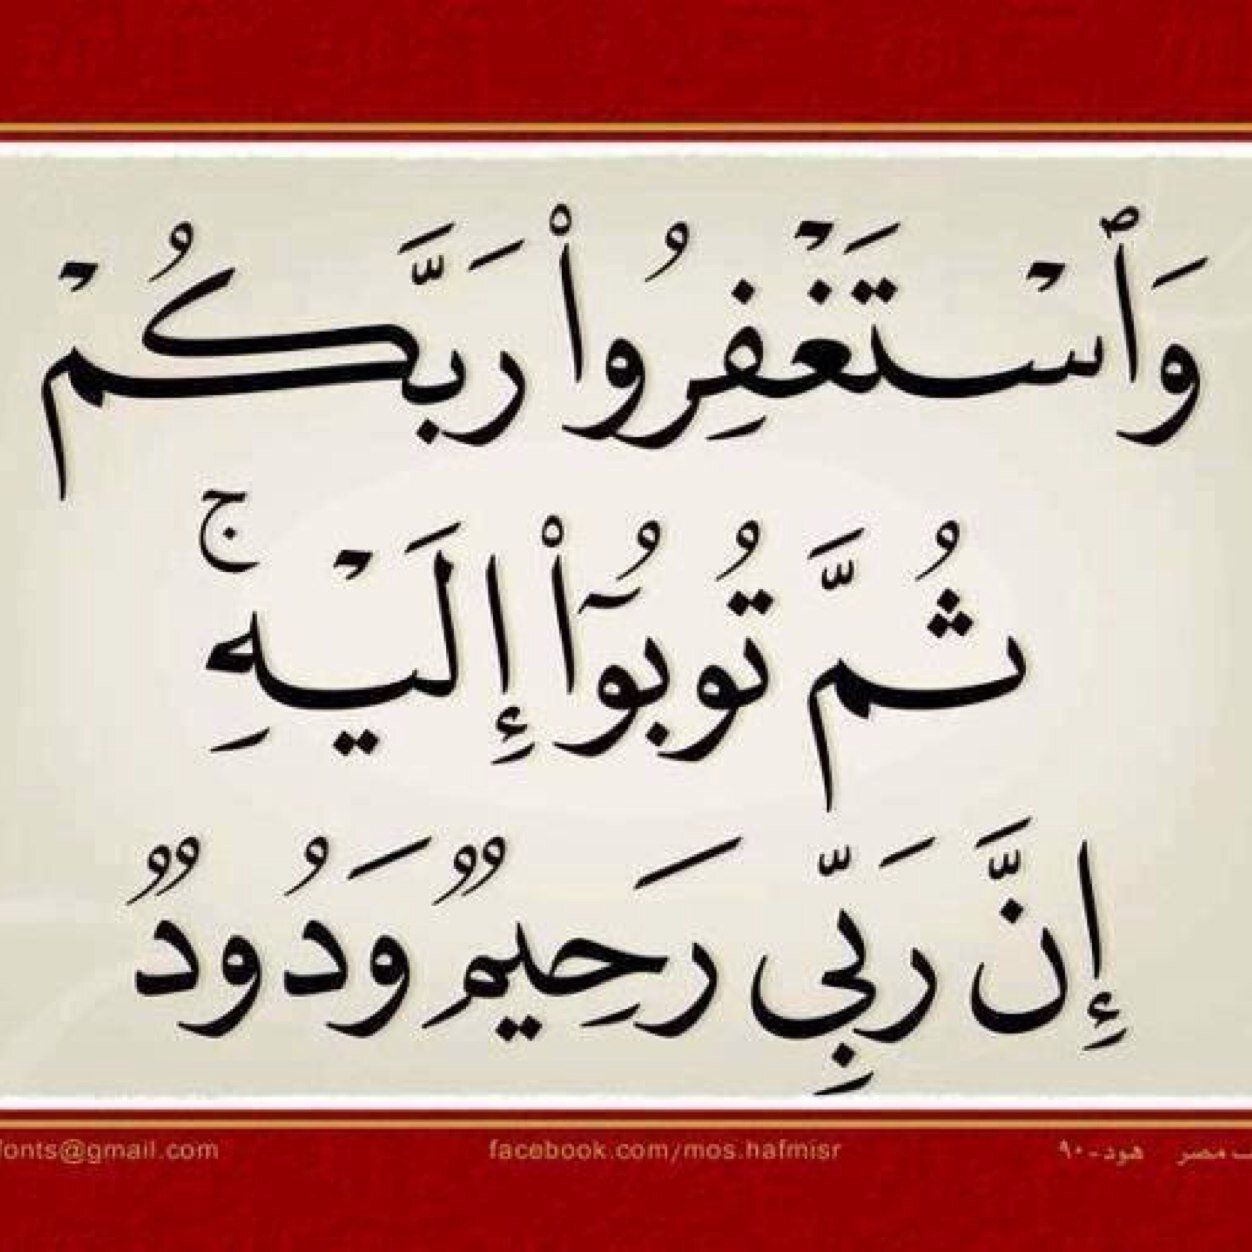 وَٱسْتَغْفِرُوا۟ رَبَّكُمْ
ثُمَّ تُوبُوٓا۟ إِلَيْهِ ۚ
إِنَّ رَبِّى رَحِيمٌ وَدُودٌ
fonts@gmail.com facebook.com/mos.hafmisr هود-٩٠ مصر